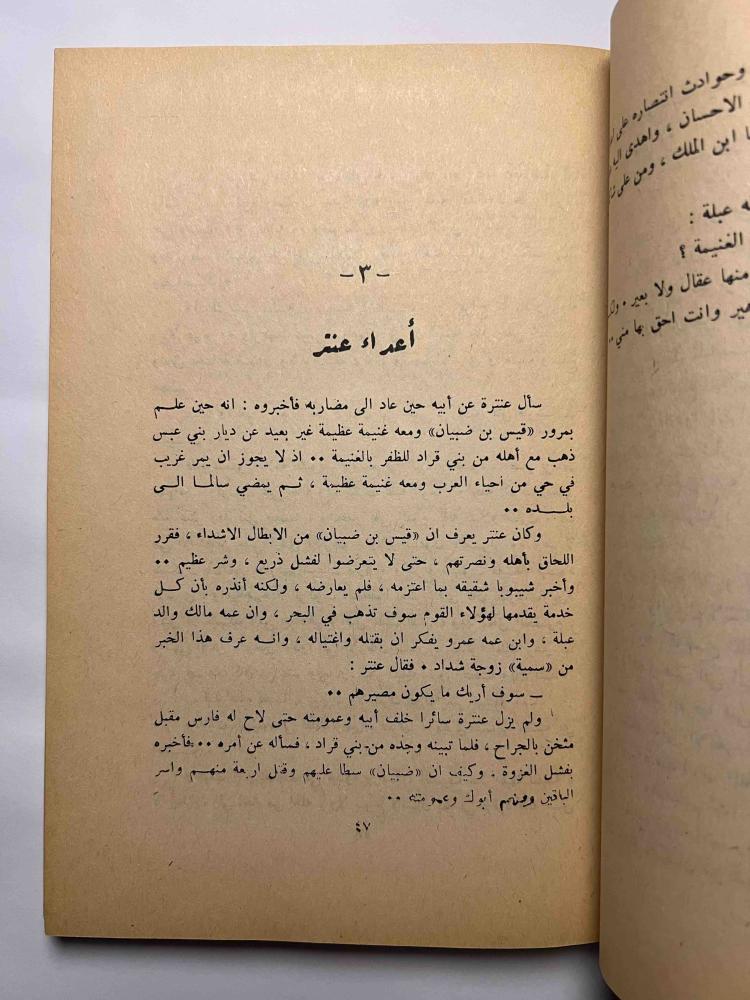 -٣-
أعداء عنتر
سأل عنترة عن أبيه حين عاد الى مضاربه فأخبروه : انه حين علم
بمرور «قيس بن ضبيان» ومعه غنيمة عظيمة غير بعيد عن ديار بني عبس
ذهب مع أهله من بني قراد للظفر بالغنيمة .. اذ لا يجوز ان يمر غريب
في حي من أحياء العرب ومعه غنيمة عظيمة ، ثم يمضي سالما الى
بلده ..
وكان عنتر يعرف ان «قيس بن ضبيان» من الابطال الاشداء ، فقرر
اللحاق بأهله ونصرتهم ، حتى لا يتعرضوا لفشل ذريع ، وشر عظيم ..
وأخبر شيبوبا شقيقه بما اعتزمه ، فلم يعارضه ، ولكنه أنذره بأن كل
خدمة يقدمها لهؤلاء القوم سوف تذهب في البحر ، وان عمه مالك والد
عبلة ، وابن عمه عمرو يفكر ان بقتله واغتياله ، وانه عرف هذا الخبر
من «سمية» زوجة شداد . فقال عنتر :
ــ سوف أريك ما يكون مصيرهم ..
ولم يزل عنترة سائرا خلف أبيه وعمومته حتى لاح له فارس مقبل
مثخن بالجراح ، فلما تبينه وجده من بني قراد ، فسأله عن أمره .. فأخبره
بفشل الغزوة ، وكيف ان «ضبيان» سطا عليهم وقتل اربعة منهم واسر
الباقين ومنهم أبوك وعمومته ..
٤٧
وحوادث انتصاره على
الاحسان ، واهدى
ابن الملك ، ومن على
عبلة :
الغنيمة ؟
منها عقال ولا بعير .
وانت احق بها مني ..